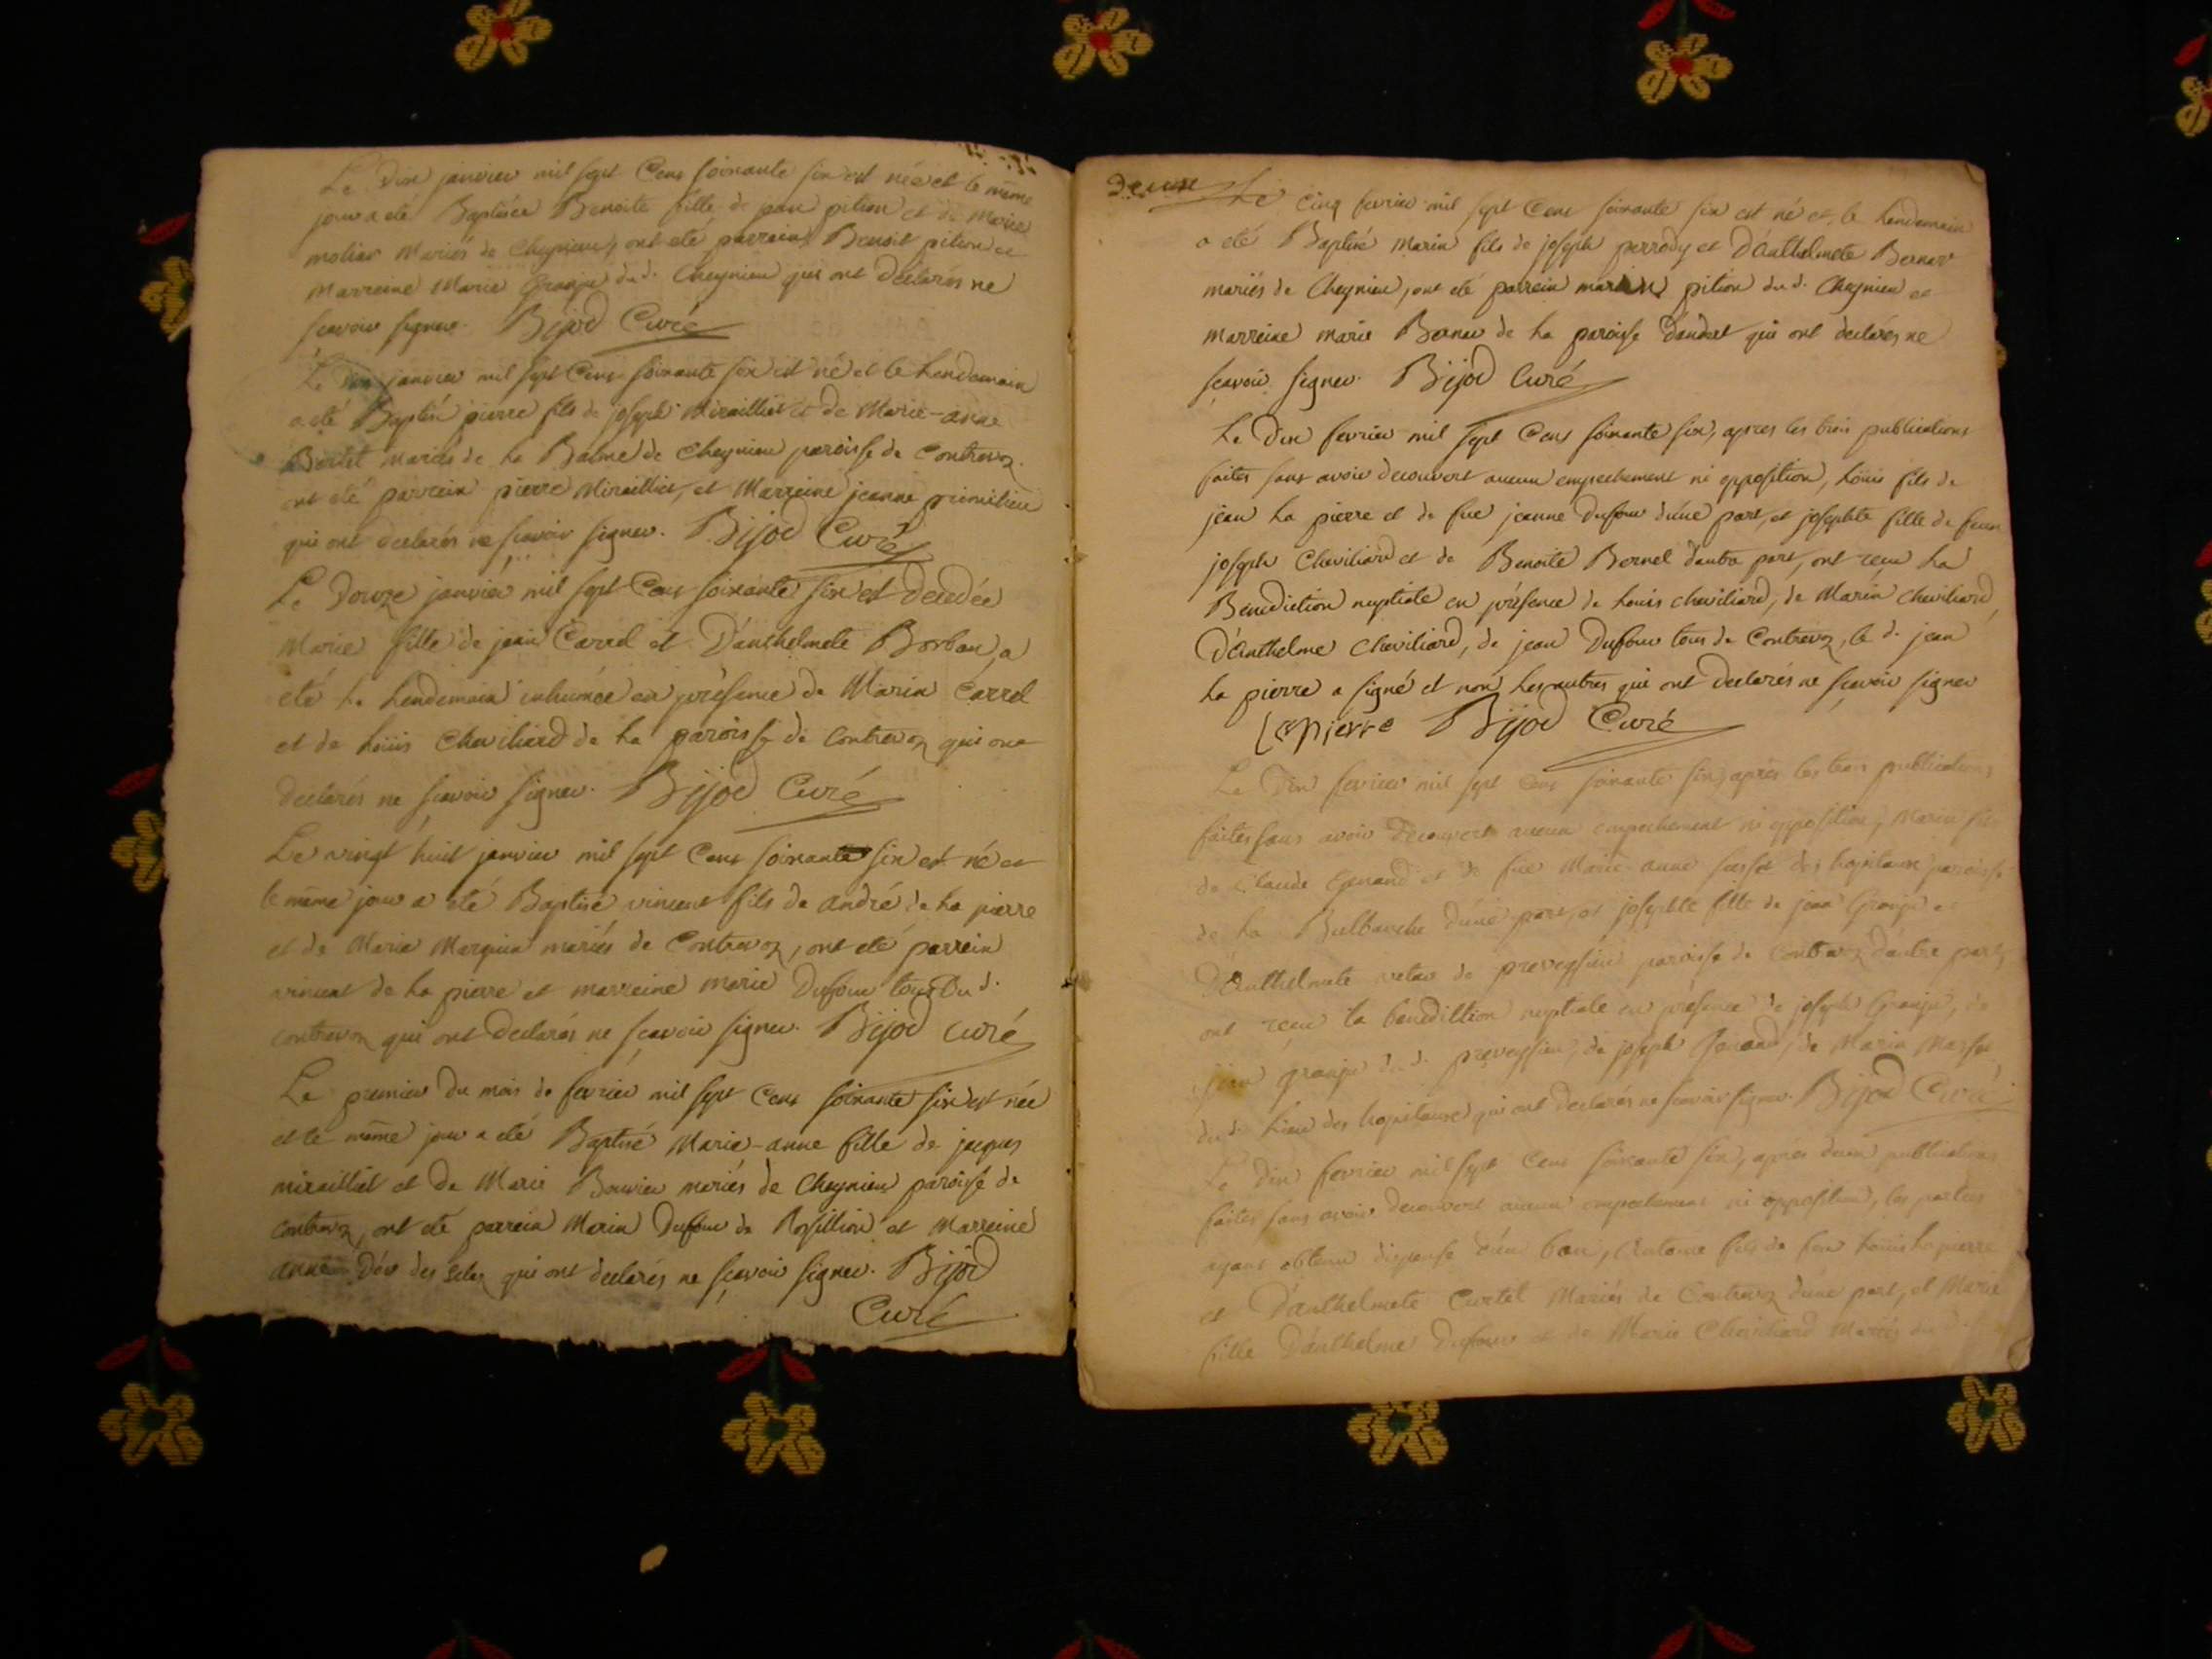 Le Dix janvier mil sept Cens soixante six est née et le même
jour a été Baptisée Benoite fille de jean pition et de Marie
molias Mariés de Cheynieu, ont été parrain Benoit pition et
Marreine Marie Granju du d. Cheynieu qui ont déclarés ne
scavoir signer. Bijod Curé
Le Dix janvier mil sept Cens soixante six est né et le Lendemain
a été Baptisé pierre fils de joseph Miraillet et de Marie-anne
Bertet Mariés de La Balme de Cheynieu paroisse de Contrevoz
ont été parrein pierre Miraillet, et Marreine jeanne
qui ont declarés ne scavoir signer. Bijod Curé
Le Douze janvier mil sept Cens soixante six est Decedée
Marie fille de jean Carrel et D'anthelmete Borban, a
été Le Lendemain inhumée en présence de Marin Carrel
et de Loüis Cheviliard de La paroisse de Contrevoz qui ont
declarés ne scavoir signer. Bijod Curé
Le vingt huit janvier mil sept Cens soixante six est né et
le même jour a été Baptisé vincent fils de andré de La pierre
et de Marie Marquin mariés de Contrevoz, ont été parrein
vincent de La pierre et marreine marie Dufour tous Du d.
contrevoz qui ont declarés ne scavoir signer. Bijod curé
Le premier du mois de fevrier mil sept Cens soixante six est née
et le même jour a été Baptisé Marie-anne fille de jacques
miraillet et De Marie Bouvier mariés de Cheynieu paroisse de
contrevoz, ont été parrein Marin Dufour de Rossillion et Marreine
anne des qui ont declarés ne scavoir signer. Bijod
Curé
Deuxe
Le Cinq fevrier mil sept Cens soixante six est né et le Lendemain
a été Baptisé Marin fils de joseph perrody et D'anthelmete Bernar
mariés de Cheynieu, ont été parrein marin pition du d. Cheynieu et
marreine marie Bernar de La paroisse d'andert qui ont declarés ne
scavoir signer. Bijod Curé
Le Dix fevrier mil sept Cens soixante six, apres les trois publications
faites sans avoir decouvert aucun empechement ni opposition, Loüis fils de
jean La pierre et de fue jeanne Dufour d'une part, et josephte fille de feu
joseph Cheviliard et de Benoite Bernel d'autre part, ont recu La
Benediction nuptiale en présence de Louis cheviliard, de Marin cheviliard,
D'Anthelme Cheviliard, de jean Dufour tous de Contrevoz, le d. jean
La pierre a signé et non Les autres qui ont declarés ne scavoir signer
Lapierre Bijod Curé
Le Dix fevrier mil sept Cens soixante six, après les trois publications
faites sans avoir decouvert aucun empechement ni opposition, Marin fils
de Claude Genand et de fue Marie anne des hopitaux paroisse
de La Bulbanche d'une part, et josephte fille de jean Granju et
D'Anthelmete de preveyssieu paroisse de Contrevoz d'autre part,
ont recu la benediction nuptiale en présence de joseph Granju, de
jean granju du d. preveyssieu, de joseph Genand, de Marin
du d. Lieu des hopitaux qui ont declarés ne scavoir signer. Bijod Curé
Le Dix fevrier mil sept Cens soixante six, après deux publications
faites sans avoir decouvert aucun empechement ni opposition, les parties
ayant obtenu dispense d'un ban, Antoine fils de feu Loüis Lapierre
et D'anthelmete Curtet Mariés de Contrevoz d'une part, et Marie
fille D'anthelme Dufour et de Marie Cheviliard Mariés du